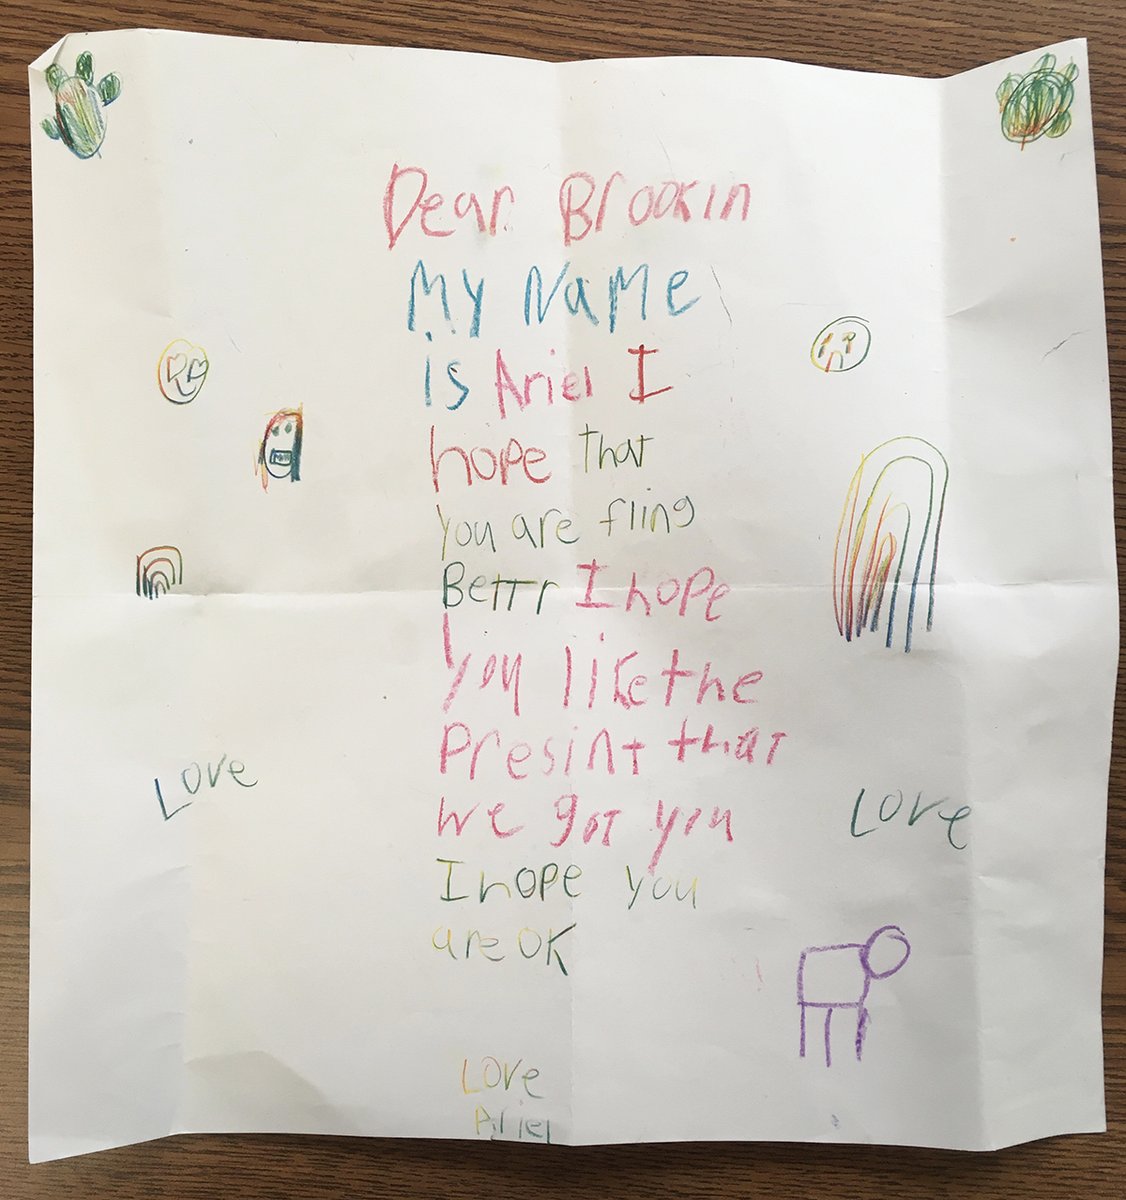 Dear Brookin
My Name
is Ariel I
hope that
you are fling
Bettr I hope
you like the
Presint that
we got you
I hope you
are OK
Love
Love
Love
Ariel